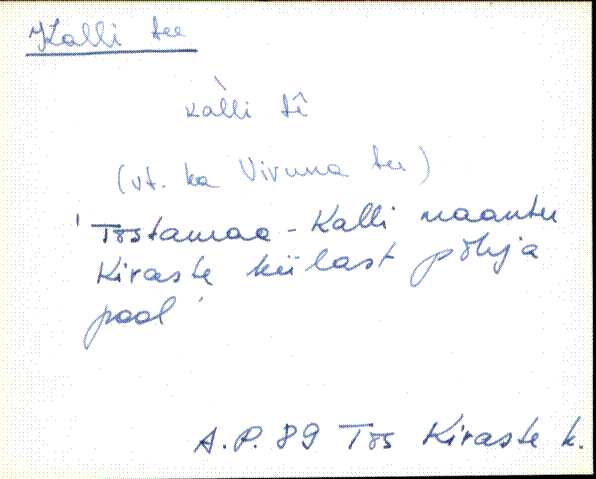 Kalli tee
kàlli tî
(vt. ka Viruna tee)
'Tõstamaa - Kalli maantee
Kiraste külast põhja
pool'
A.P. 89 Tõs Kiraste k.